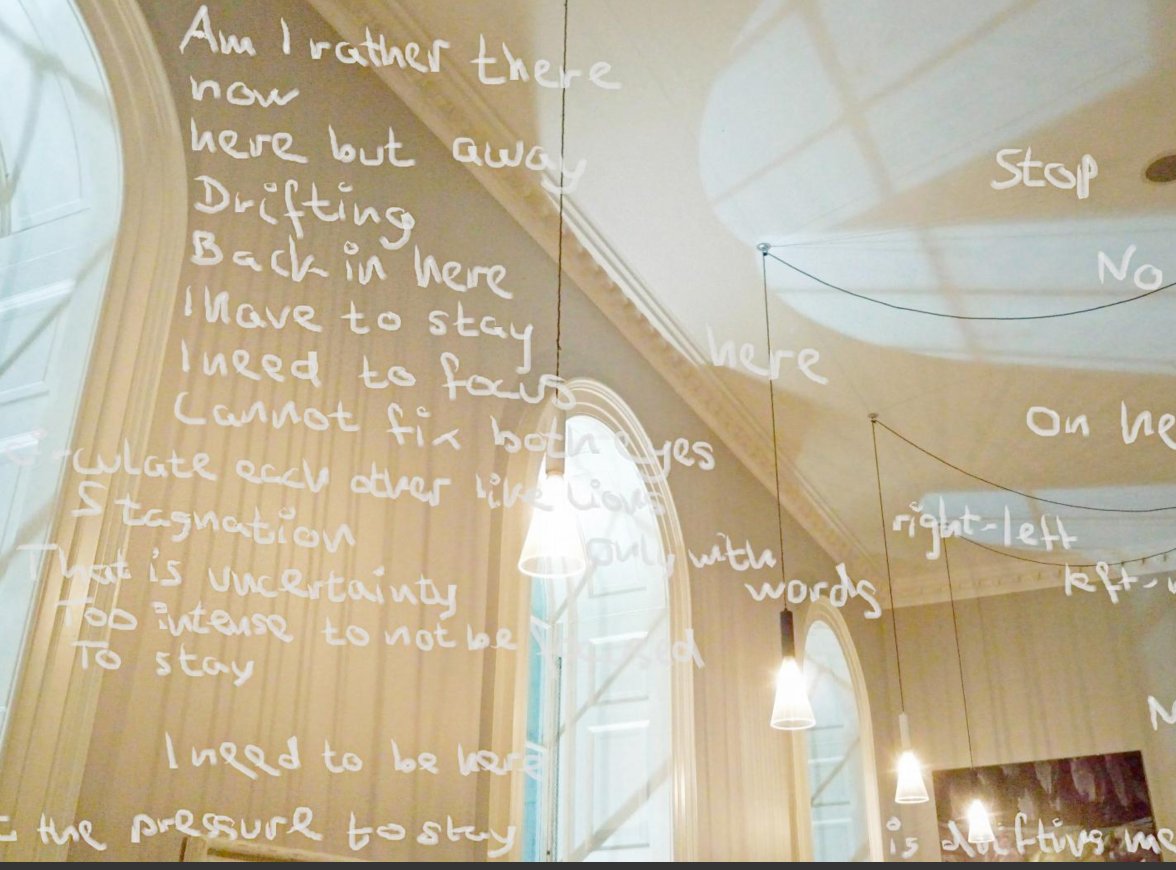 Am I rather there
now
here but away
Drifting
Back in here
I have to stay
I need to focus
Cannot fix both eyes
each other like lions
Stagnation
only with
words
That is uncertainty
Too intense to not be
To stay
I need to be here
the pressure to stay
Stop
No
here
On he
right-left
left-
is drifting me